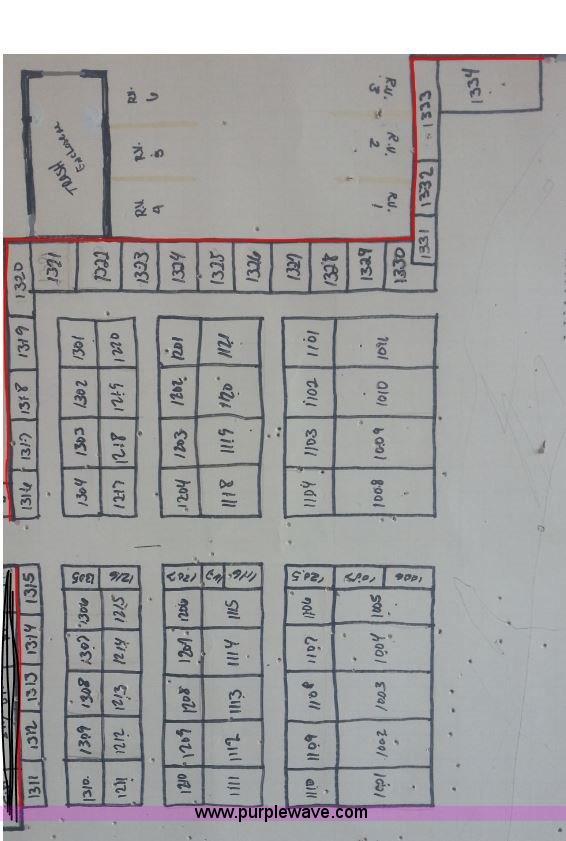 1334
R.V. 3
1333
R.V. 2
R.V. 1
1332
1331
RV. 6
RV. 5
RV. 4
TRASH
Enclosure
1320
1321
1322
1323
1324
1325
1326
1327
1328
1329
1330
1319
1318
1317
1316
1301
1220
1302
1219
1303
1218
1304
1217
1201
1121
1202
1120
1203
1119
1204
1118
1101
1102
1010
1103
1009
1104
1008
1315
1314
1313
1312
1311
1305
1216
1306
1215
1307
1214
1308
1213
1309
1212
1310
1211
1206
1115
1207
1114
1208
1113
1209
1112
1210
1111
1006
1106
1005
1107
1004
1108
1003
1109
1002
1110
1001
www.purplewave.com